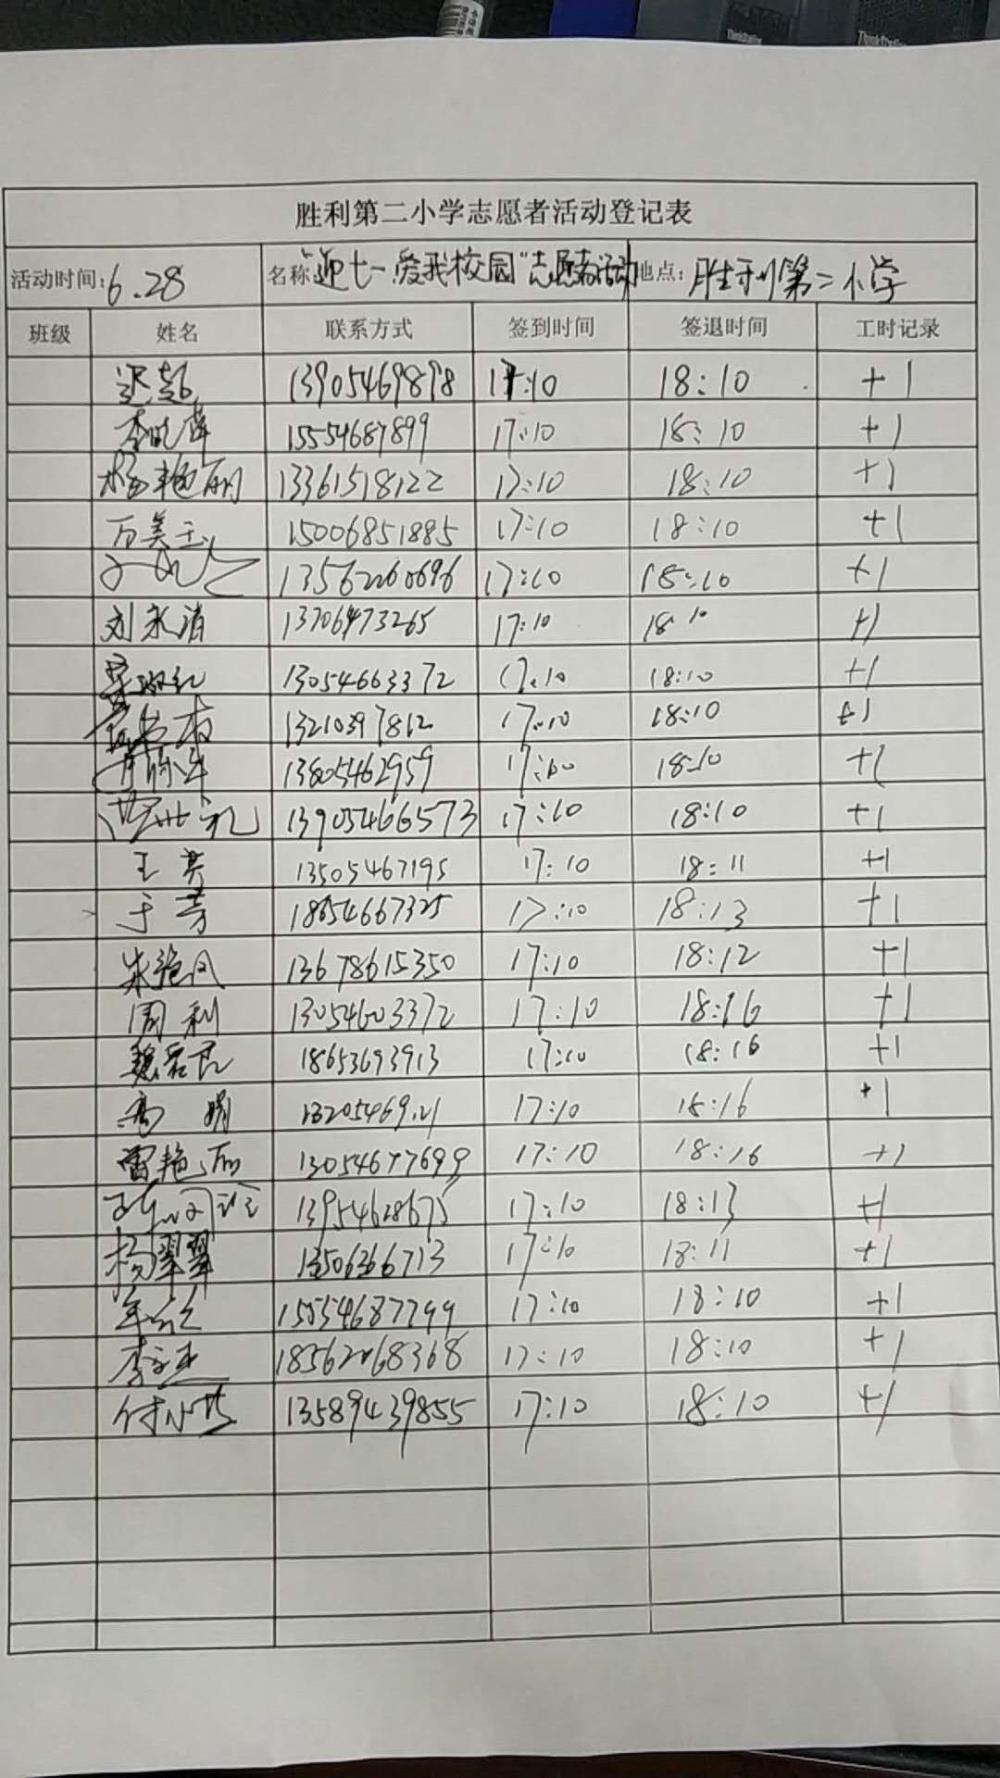 胜利第二小学志愿者活动登记表
活动时间:6.28 名称:"迎七一.爱我校园"志愿者活动 地点:胜利第二小学
班级 姓名 联系方式 签到时间 签退时间 工时记录
迟超 13905469898 17:10 18:10 +1
李晓萍 15554687899 17:10 18:10 +1
杨艳丽 13361518122 17:10 18:10 +1
万美玉 15006851885 17:10 18:10 +1
13562260696 17:10 18:10 +1
刘永清 13706473265 17:10 18 10 +1
13054663372 17:10 18:10 +1
13210397812 17:10 18:10 +1
13805462959 17:10 18:10 +1
13905466573 17:10 18:10 +1
王芳 13505467195 17:10 18:11 +1
于芳 18654667325 17:10 18:13 +1
朱艳凤 13678615350 17:10 18:12 +1
周利 13054603372 17:10 18:16 +1
魏君民 18653693913 17:10 18:16 +1
高娟 17:10 18:16 +1
雷艳丽 13054677699 17:10 18:16 +1
13954628675 17:10 18:13 +1
杨翠翠 13506366713 17:10 18:11 +1
15554687799 17:10 18:10 +1
李 18562068368 17:10 18:10 +1
付小芳 13589439855 17:10 18:10 +1